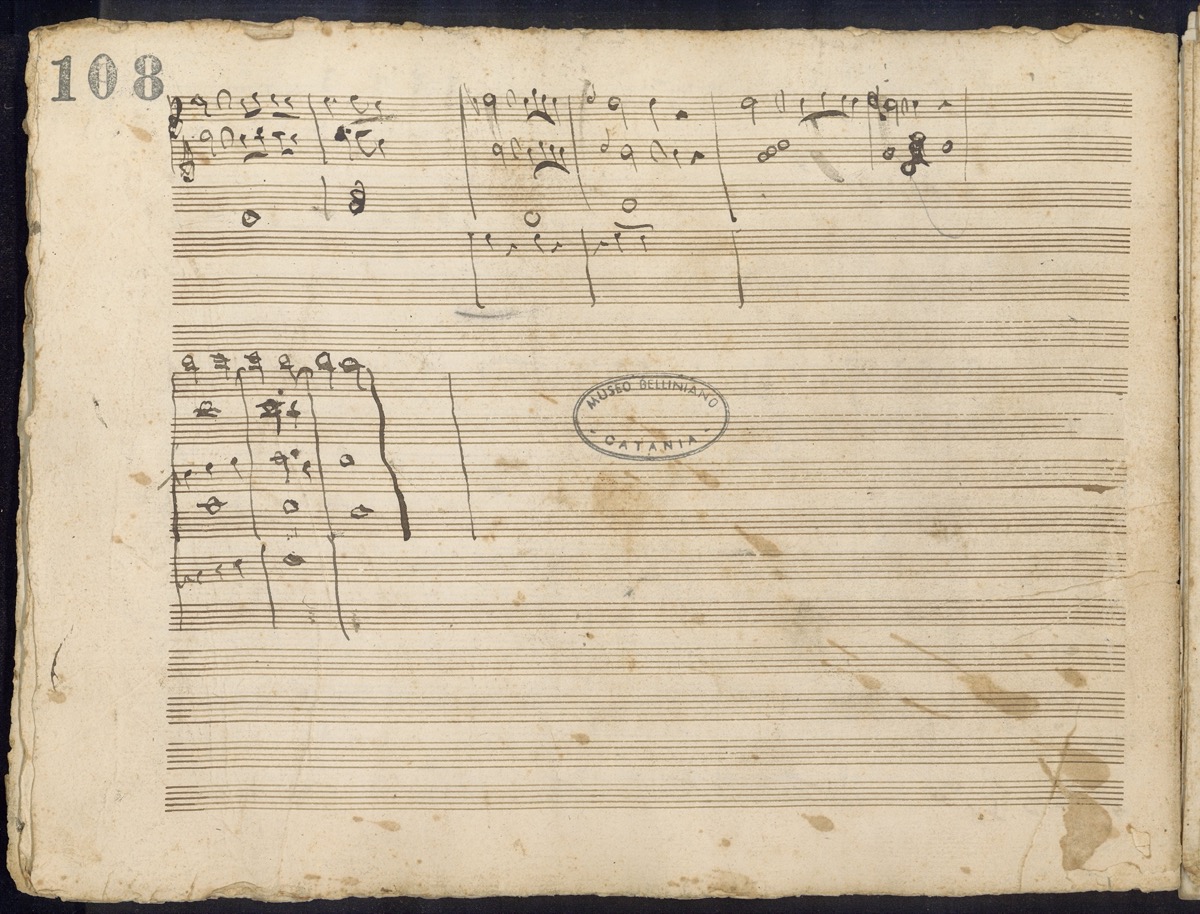 108
MUSEO BELLINIANO
- CATANIA -